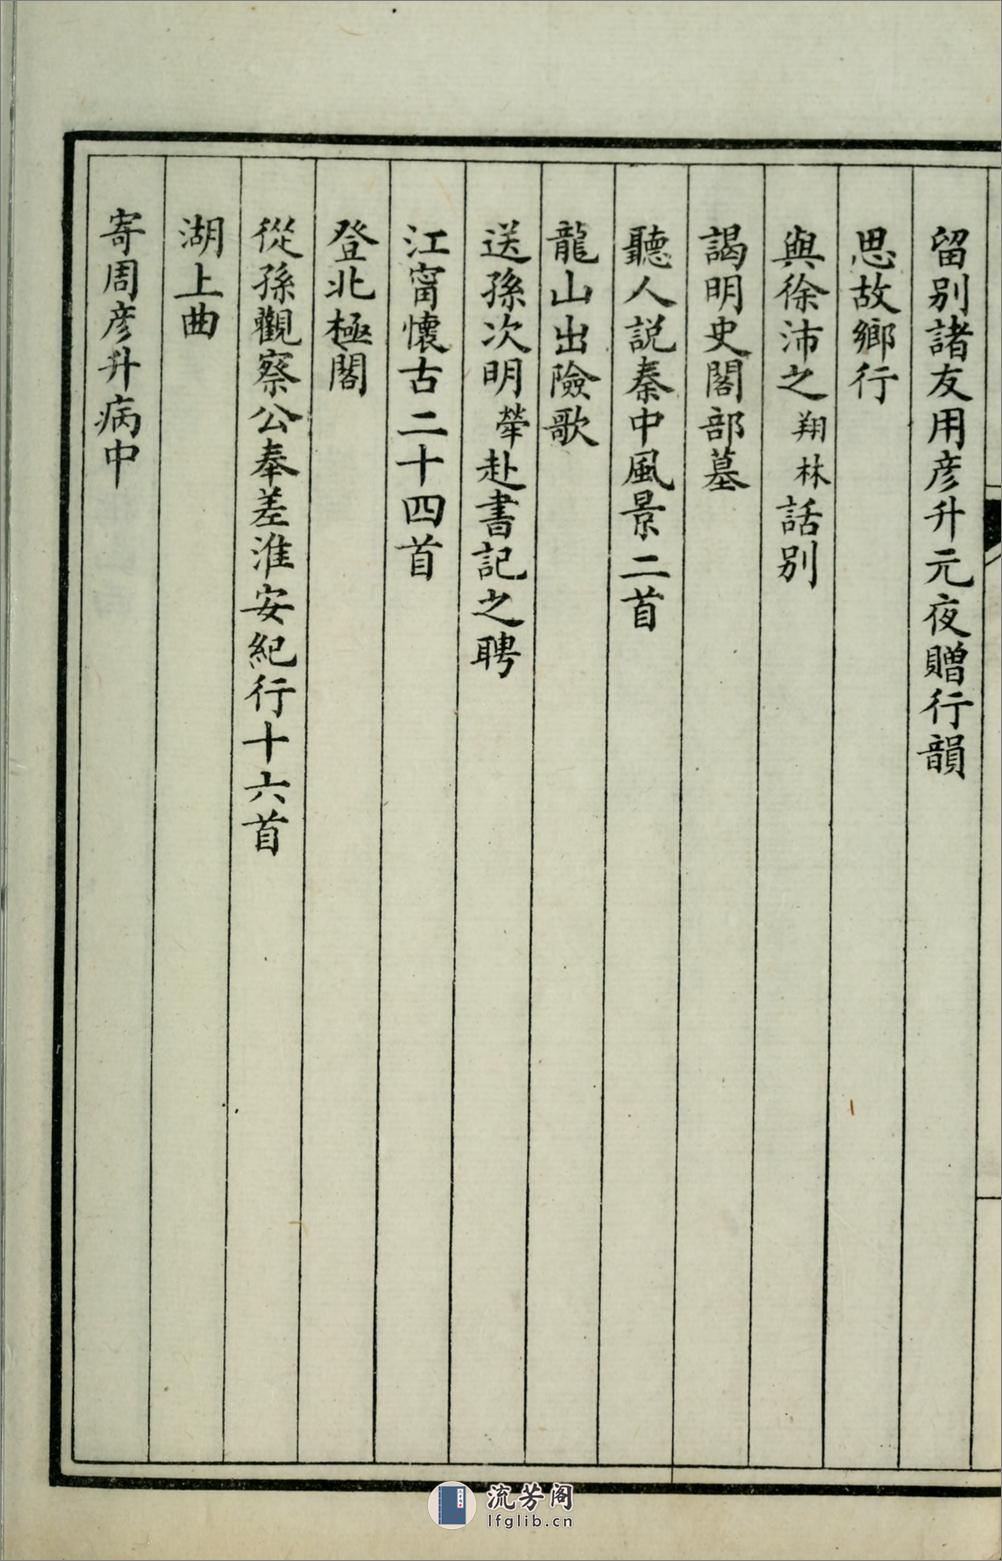 留别諸友用彦升元夜贈行韻
思故鄉行
與徐沛之翔林話别
謁明史閣部墓
聽人説秦中風景二首
龍山出險歌
送孫次明犖赴書記之聘
江甯懷古二十四首
登北極閣
從孫觀察公奉差淮安紀行十六首
湖上曲
寄周彦升病中
流芳阁
lfglib.cn